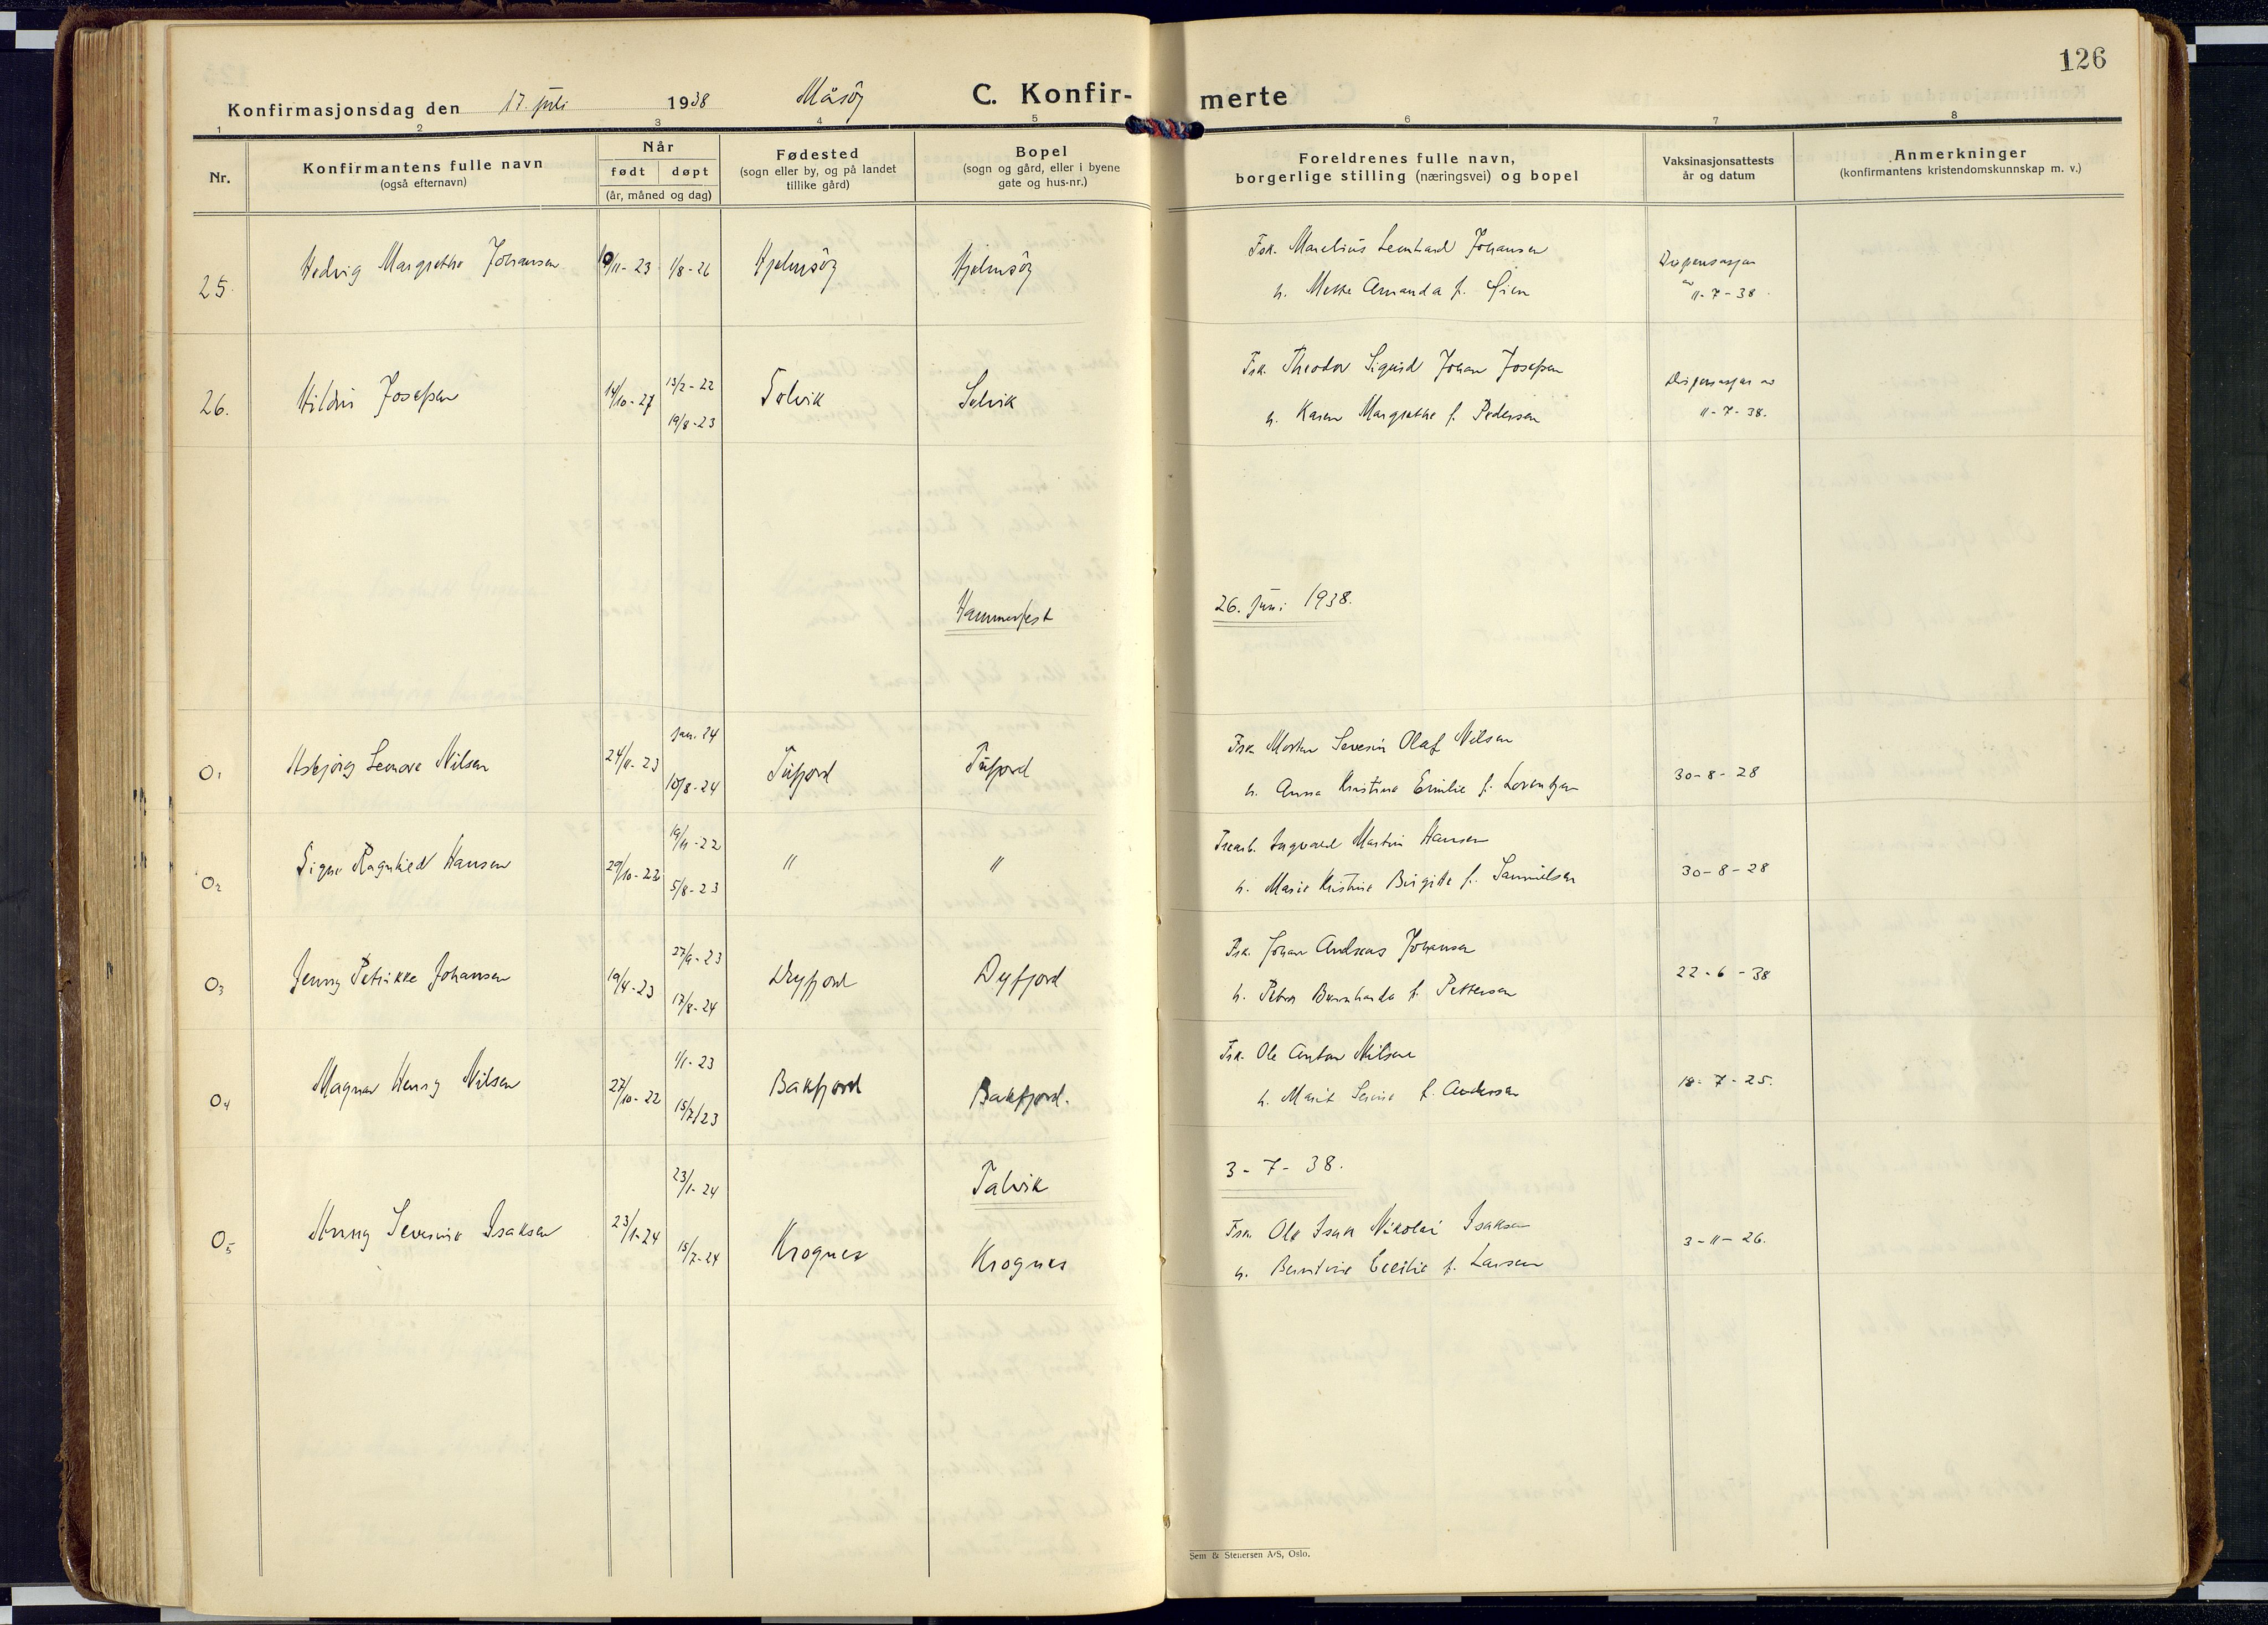 126
Konfirmasjonsdag den 17. juli 1938 Måsöy C. Konfir- merte
1 2 3 4 5 6 7 8
Nr.
Konfirmantens fulle navn
(også efternavn)
Når
født døpt
(år, måned og dag)
Fødested
(sogn eller by, og på landet
tillike gård)
Bopel
(sogn og gård, eller i byene
gate og hus-nr.)
Foreldrenes fulle navn,
borgerlige stilling (næringsvei) og bopel
Vaksinasjonsattests
år og datum
Anmerkninger
(konfirmantens kristendomskunnskap m. v.)
25. Hedvig Margrethe Johansen 10/11-23 1/8-26 Hjelmsöy Hjelmsöy
Fsk. Marelius Leonhard Johansen
h. Mette Amanda f.
Dispensasjon
av 11-7-38.
26. Hildur Josefsen 14/10-27 13/2-22 Selvik Selvik
19/8-23
Fsk. Theodor Sigurd Johan Josefsen
h. Karen Margrethe f. Pedersen
Dispensasjon av
11-7-38.
Hammerfest 26. juni 1938.
01 Asbjörg Lenore Nilsen 24/11-23 jan. 24 Tufjord Tufjord
10/8-24
Fsk. Morten Severin Olaf Nilsen
h. Anna Kristine Emilie f. Lorentzen
30-8-28
02 Signe Ragnhild Hansen 29/10-22 19/11-22 " "
5/8-23
Ingvald Martin Hansen
h. Marie Kristine Birgitte f. Samuelsen
30-8-28
03 Jenny Petrikke Johansen 19/4-23 27/9-23 Dyfjord Dyfjord
17/8-24
Fsk. Johan Andreas Johansen
h. Petra Bernharda f. Pettersen
22-6-38
04 Magnar Henry Nilsen 27/10-22 1/1-23 Bakfjord Bakfjord.
15/7/23
Fsk. Ole Anton Nilsen
h. Marit f. Andersen
18-7-25.
Talvik 3-7-38.
05 Anny Severine Isaksen 23/1-24 23/1-24 Krognes Krognes
15/7-24
Fsk. Ole Isak Nikolai Isaksen
h. Berntine Cecilie f. Larsen
3-11-26.
Sem & Stenersen A/S, Oslo.